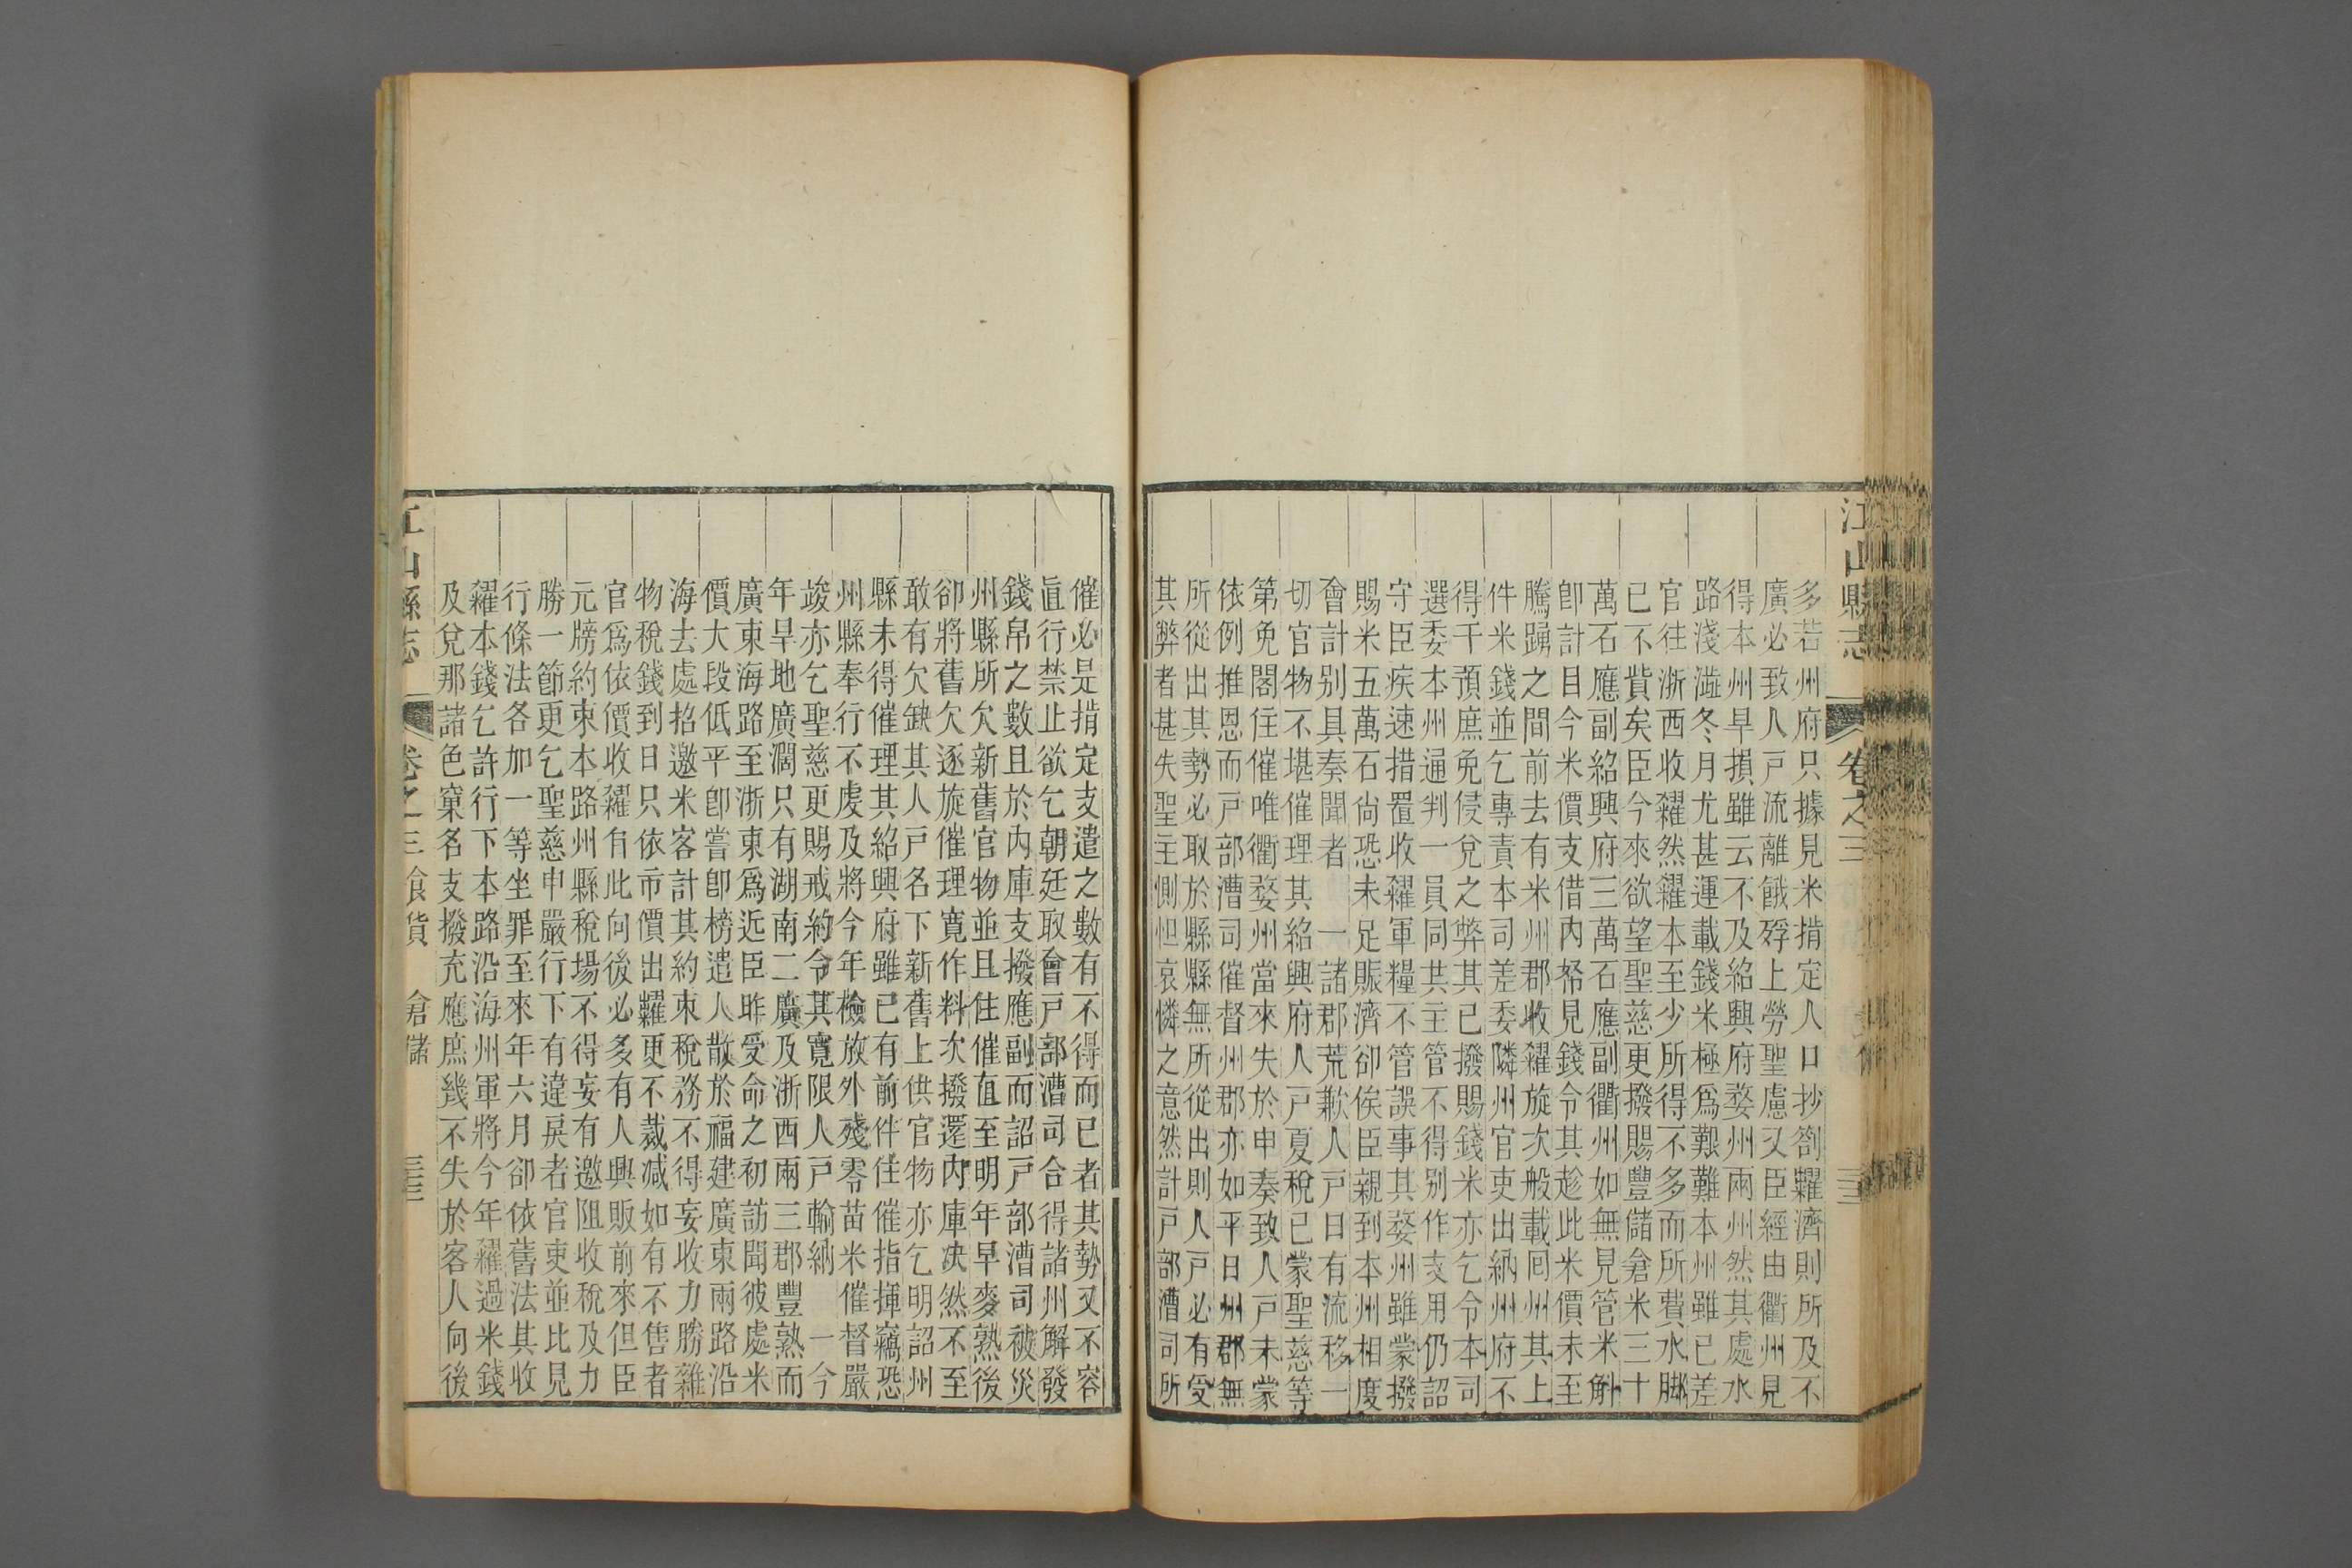 江山縣志 卷之三
多若州府只據見米措定人口抄劄糶濟則所及不
廣必致人戸流離餓殍上勞聖慮又臣經由衢州見
得本州早損雖云不及紹興府婺州兩州然其處水
路淺澁冬月尤甚運載錢米極爲艱難本州雖已差
官往浙西收糴然糴本至少所得不多而所費水脚
已不貲矣臣今來欲望聖慈更撥賜豐儲倉米三十
萬石應副紹興府三萬石應副衢州如無見管米斛
卽計目今米價支借内帑見錢令其趁此米價未至
騰踴之間前去有米州郡收糴旋次般載囘州其上
件米錢並乞專責本司差委隣州官吏出納州府不
得干預庶免侵兌之弊其已撥賜錢米亦乞令本司
選委本州通判一員同共主管不得别作支用仍詔
守臣疾速措置收糴軍糧不管誤事其婺州雖蒙撥
賜米五萬石尙恐未足賑濟卻俟臣親到本州相度
會計别具奏聞者 一諸郡荒歉人戸日有流移一
切官物不堪催理其紹興府人戸夏稅已蒙聖慈等
第免閣住催唯衢婺州當來失於申奏致人戸未蒙
依例推恩而戸部漕司催督州郡亦如平日州郡無
所從出其勢必取於縣縣無所從出則人戸必有受
其弊者甚失聖主惻怛哀憐之意然計戸部漕司所
催必是措定支遣之數有不得而已者其勢又不容
眞行禁止欲乞朝廷取會戸部漕司合得諸州解發
錢帛之數且於内庫支撥應副而詔戸部漕司被災
州縣所欠新舊官物並且住催直至明年早麥熟後
卻將舊欠逐旋催理寬作料次撥還内庫决然不至
敢有欠缺其人戸名下新舊上供官物亦乞明詔州
縣未得催理其紹興府雖已有前件住催指揮竊恐
州縣奉行不虔及將今年檢放外殘零苗米催督嚴
峻亦乞聖慈更賜戒約令其寬限人戸輸納 一今
年旱地廣濶只有湖南二廣及浙西兩三郡豐熟而
廣東海路至浙東爲近臣昨受命之初訪聞彼處米
價大段低平卽嘗卽榜遣人散於福建廣東兩路沿
海去處招邀米客計其約束稅務不得妄收力勝雜
物稅錢到日只依市價出糶更不裁减如有不售者
官爲依價收糴自此向後必多有人興販前來但臣
元牓約束本路州縣稅場不得妄有邀阻收稅及力
勝一節更乞聖慈申嚴行下有違戾者官吏並比見
行條法各加一等坐罪至來年六月卻依舊法其收
糴本錢乞許行下本路沿海州軍將今年糴過米錢
及兌那諸色窠名支撥充應庶幾不失於客人向後
江山縣志 卷之三 食貨 倉儲 三三